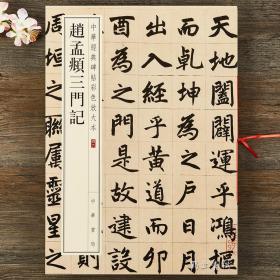 天地闔闢運乎鴻樞
而乾坤為之戶日月
出入經乎黃道而卯
酉為之門是故建設
中華經典碑帖彩色放大本
趙孟頫三門記
中華書局
周垣之聯屬靈星